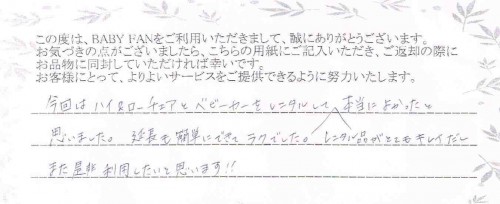 この度は、BABY FANをご利用いただきまして、誠にありがとうございます。
お気づきの点がございましたら、こちらの用紙にご記入いただき、ご返却の際に
お品物に同封していただければ幸いです。
お客様にとって、よりよいサービスをご提供できるように努力いたします。
今回はハイ&ローチェアとベビーカーをレンタルして、本当によかったと
思いました。延長も簡単にできてラクでした。レンタル品がとてもキレイだし
また是非利用したいと思います!!